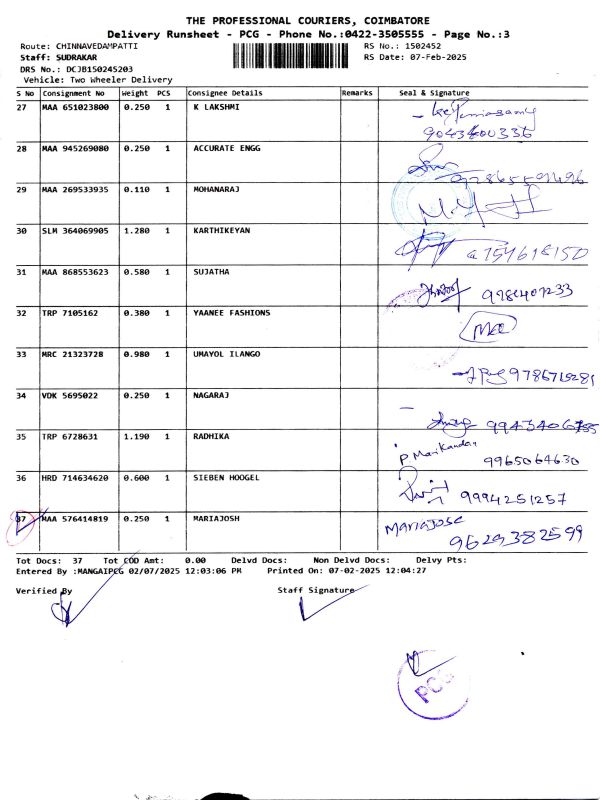 THE PROFESSIONAL COURIERS, COIMBATORE
Delivery Runsheet - PCG - Phone No.:0422-3505555 - Page No.:3
Route: CHINNAVEDAMPATTI RS No.: 1502452
Staff: SUDRAKAR RS Date: 07-Feb-2025
DRS No.: DCJB150245203
Vehicle: Two Wheeler Delivery
S No Consignment No Weight PCS Consignee Details Remarks Seal & Signature
27 MAA 651023800 0.250 1 K LAKSHMI
28 MAA 945269080 0.250 1 ACCURATE ENGG
29 MAA 269533935 0.110 1 MOHANARAJ
30 SLM 364069905 1.280 1 KARTHIKEYAN
31 MAA 868553623 0.580 1 SUJATHA
32 TRP 7105162 0.380 1 YAANEE FASHIONS
33 MRC 21323728 0.980 1 UMAYOL ILANGO
34 VDK 5695022 0.250 1 NAGARAJ
35 TRP 6728631 1.190 1 RADHIKA P Marikandan
9965064630
36 HRD 714634620 0.600 1 SIEBEN HOOGEL 9994251257
37 MAA 576414819 0.250 1 MARIAJOSH MARIAJOSE
9629382599
Tot Docs: 37 Tot COD Amt: 0.00 Delvd Docs: Non Delvd Docs: Delvy Pts:
Entered By :MANGAIPCG 02/07/2025 12:03:06 PM Printed On: 07-02-2025 12:04:27
Verified By Staff Signature
PCG